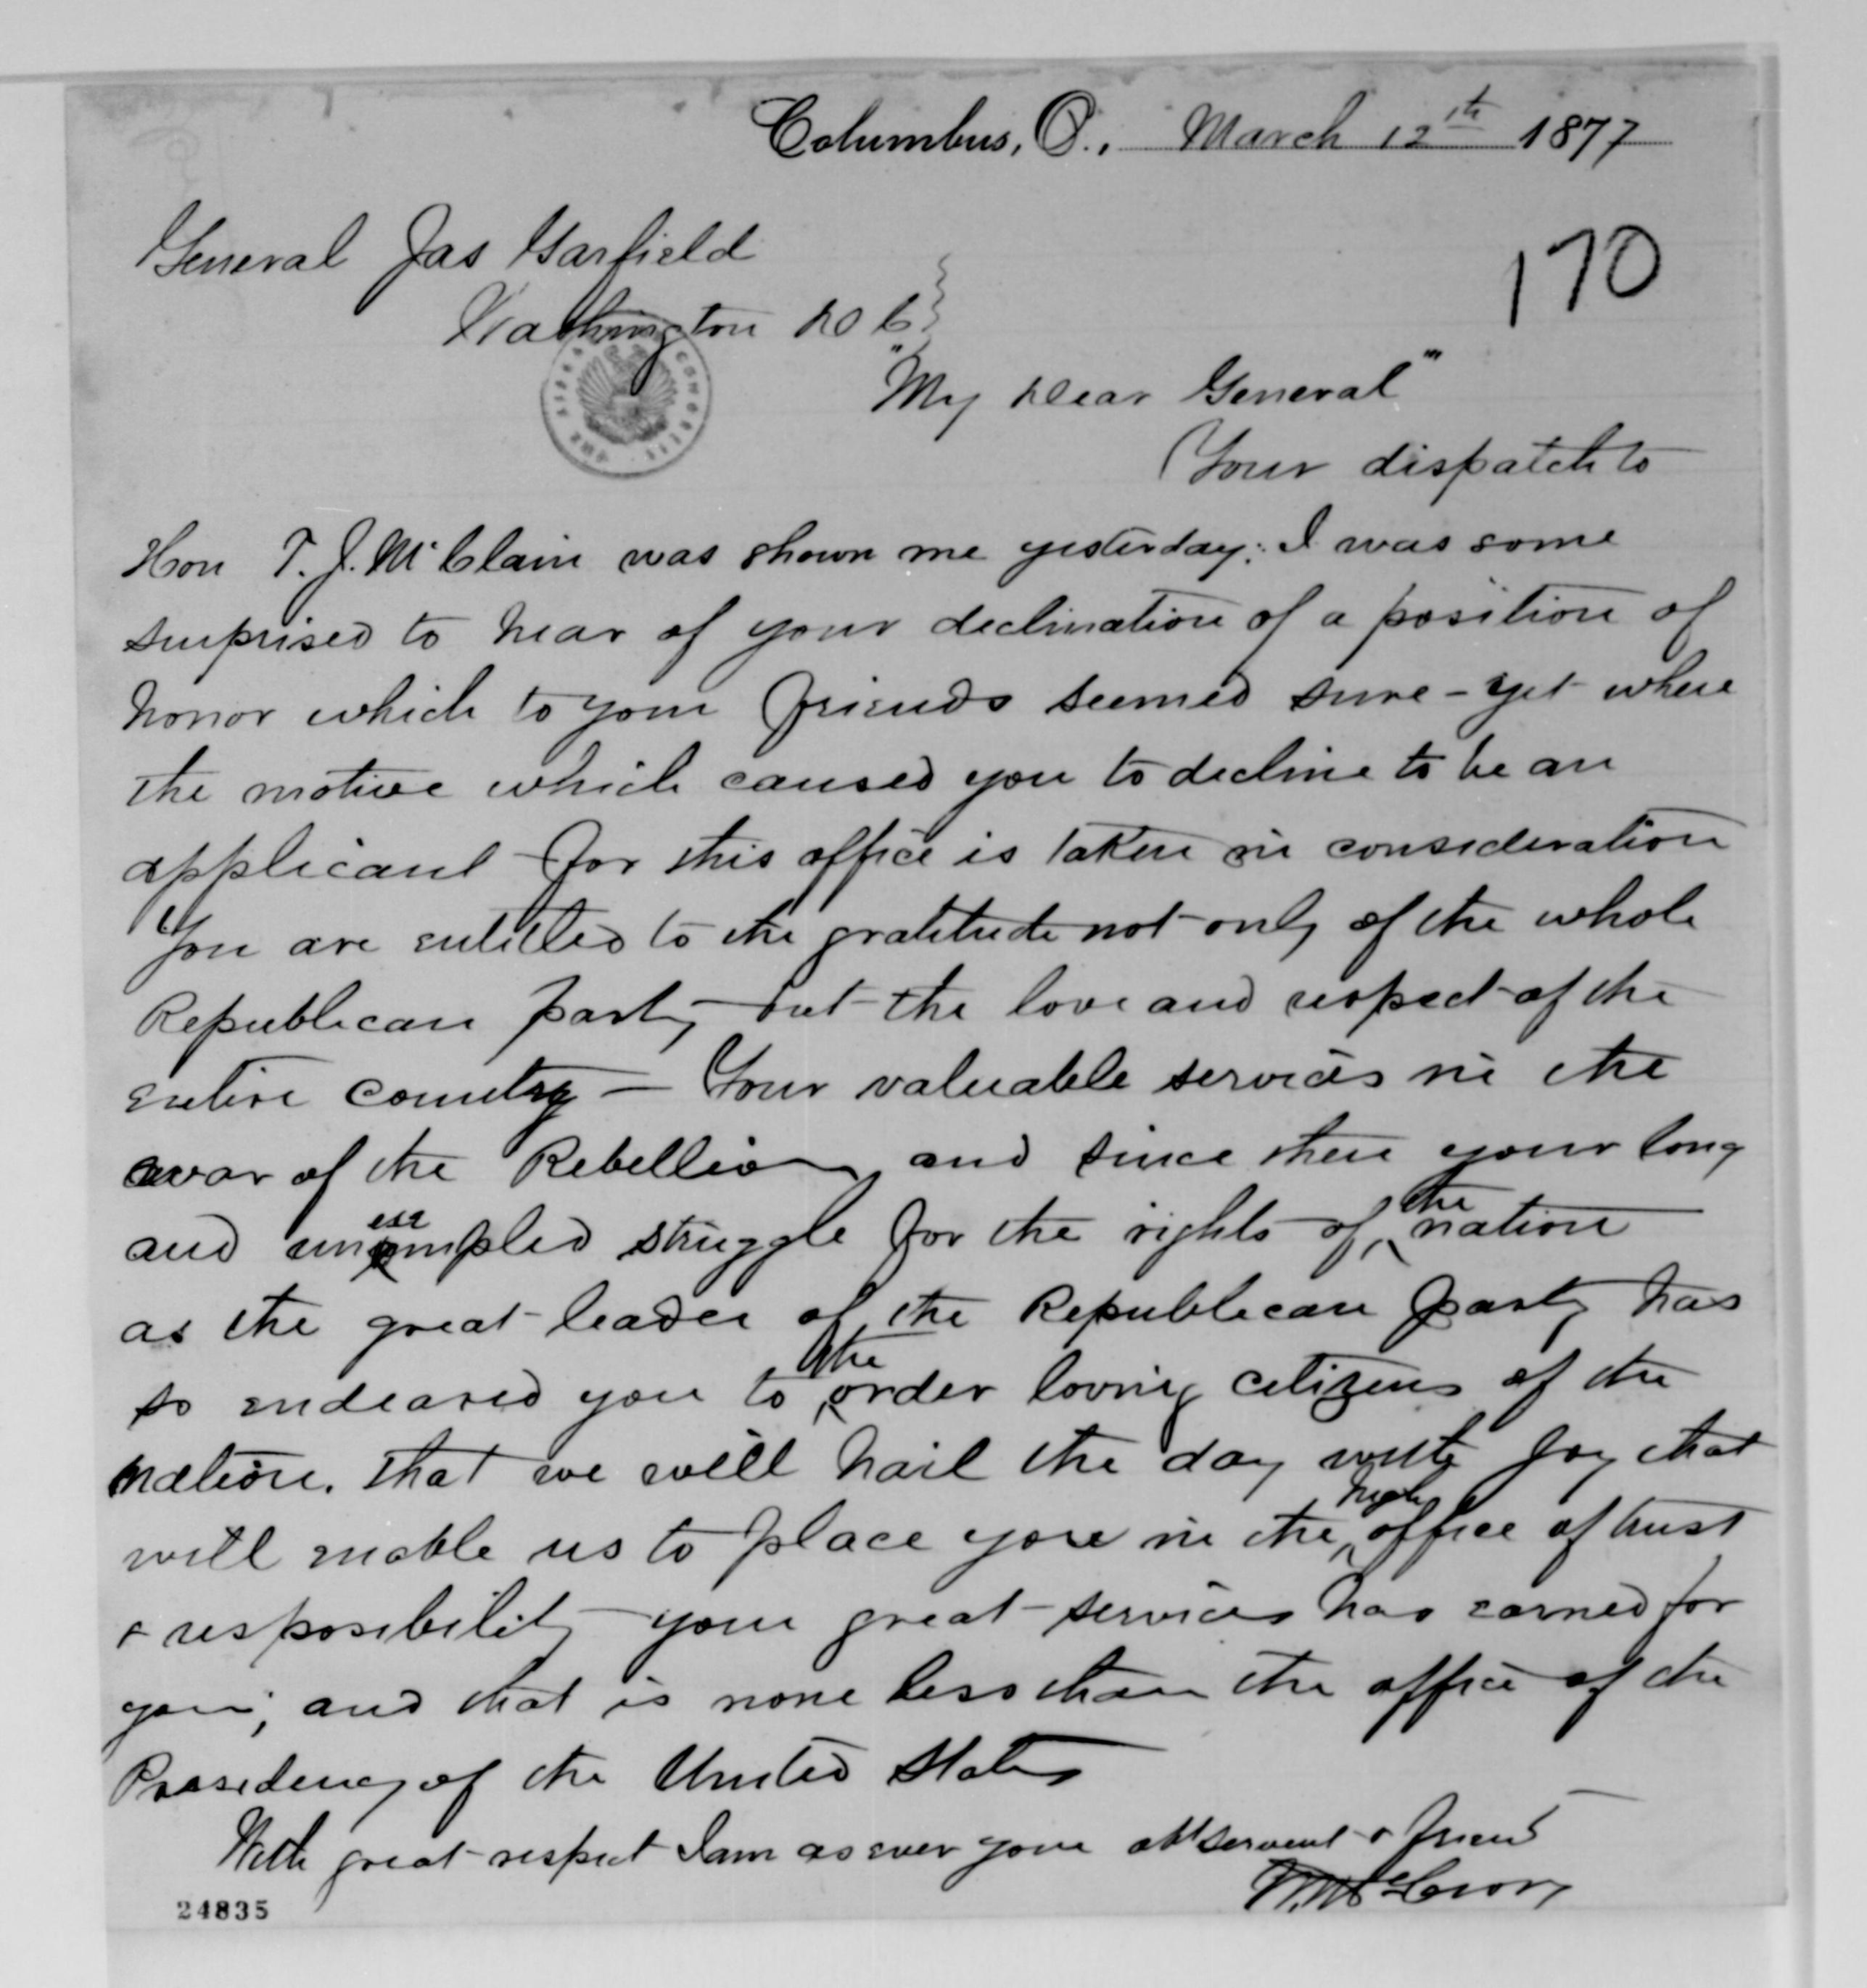 Columbus, O., March 12th 1877
General Jas Garfield
170
Washington D C
"My Dear General"
Your dispatch to
Hon T. J. McClain was shown me yesterday: I was some
surprised to hear of your declination of a position of
honor which to your friends seemed sure - yet when
the motive which caused you to decline to be an
applicant for this office is taken in consideration
You are entitled to the gratitude not only of the whole
Republican party - but the love and respect of the
entire country - Your valuable services in the
war of the Rebellion and since then your long
and unexampled struggle for the rights of the nation
as the great leader of the Republican party has
so endeared you to the order loving citizens of the
nation. that we will hail the day with joy that
will enable us to place you in the high office of trust
& resposibility your great services has earned for
you; and that is none less than the office of the
Presidency of the United States
With great respect I am as ever your obt servent & friend
24835